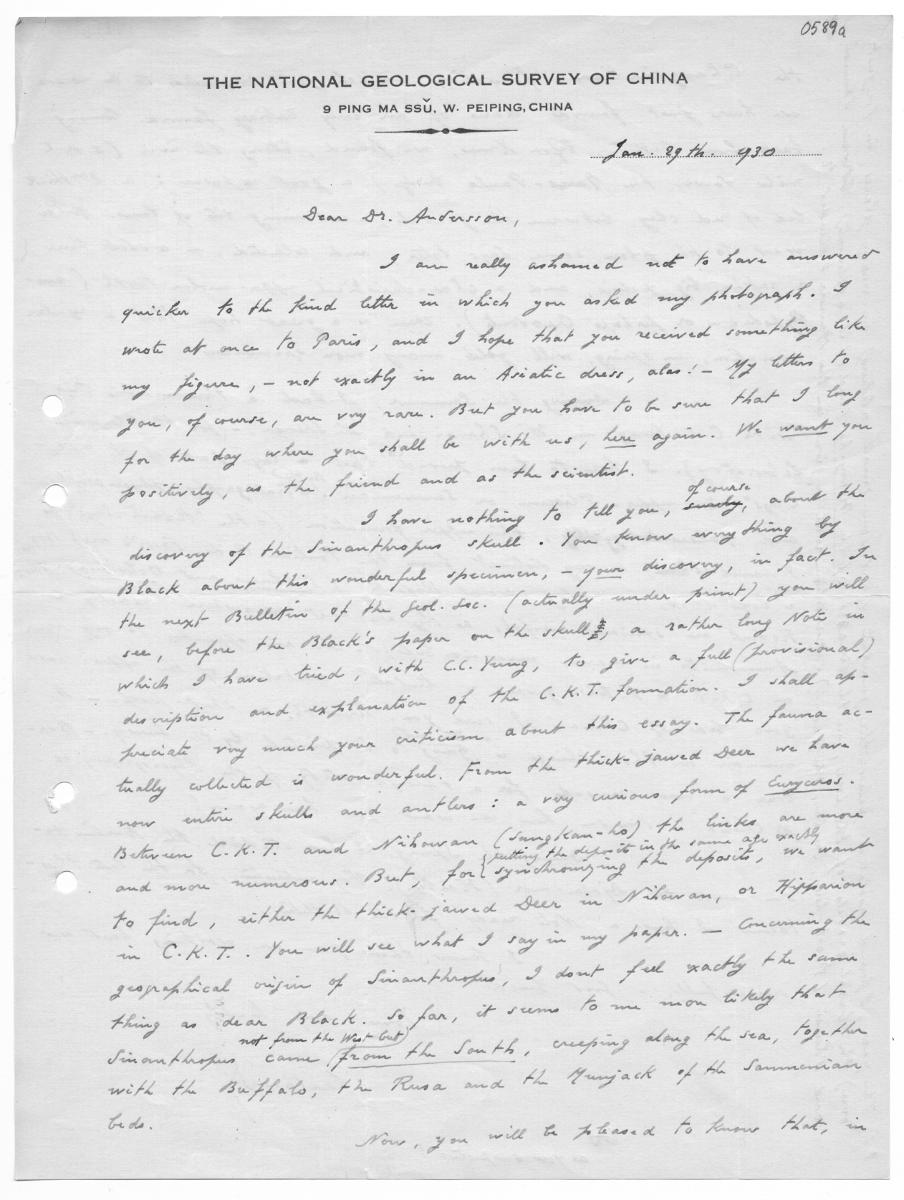 0589a
THE NATIONAL GEOLOGICAL SURVEY OF CHINA
9 PING MA SSŬ, W. PEIPING, CHINA
Jan. 29th. 1930
Dear Dr. Andersson,
I am really ashamed not to have answered
quicker to the kind letter in which you asked my photograph. I
wrote at once to Paris, and I hope that you received something like
my figure, – not exactly in an Asiatic dress, alas! – My letters to
you, of course, are very rare. But you have to be sure that I long
for the day where you shall be with us, here again. We want you
positively, as the friend and as the scientist.
of course
I have nothing to tell you, surely, about the
discovery of the Sinanthropus skull. You know everything by
Black about this wonderful specimen, – your discovery, in fact. In
the next Bulletin of the Geol. Soc. (actually under print) you will
see, before the Black's paper on the skull, a rather long Note in
which I have tried, with C.C. Yung, to give a full (provisional)
description and explanation of the C.K.T. formation. I shall ap-
preciate very much your criticism about this essay. The fauna ac-
tually collected is wonderful. From the thick-jawed Deer we have
now entire skulls and antlers: a very curious form of Euryceros.
Between C.K.T. and Nihowan (Sangkan-ho) the links are more
putting the deposits in the same age exactly
and more numerous. But, for synchronizing the deposits, we want
to find, either the thick-jawed Deer in Nihowan, or Hipparion
in C.K.T.. You will see what I say in my paper. – Concerning the
geographical origin of Sinanthropus, I dont feel exactly the same
thing as dear Black. So far, it seems to me more likely that
not from the West but
Sinanthropus came from the South, creeping along the sea, together
with the Buffalo, the Rusa and the Munjack of the Sanmenian
beds.
Now, you will be pleased to know that, in